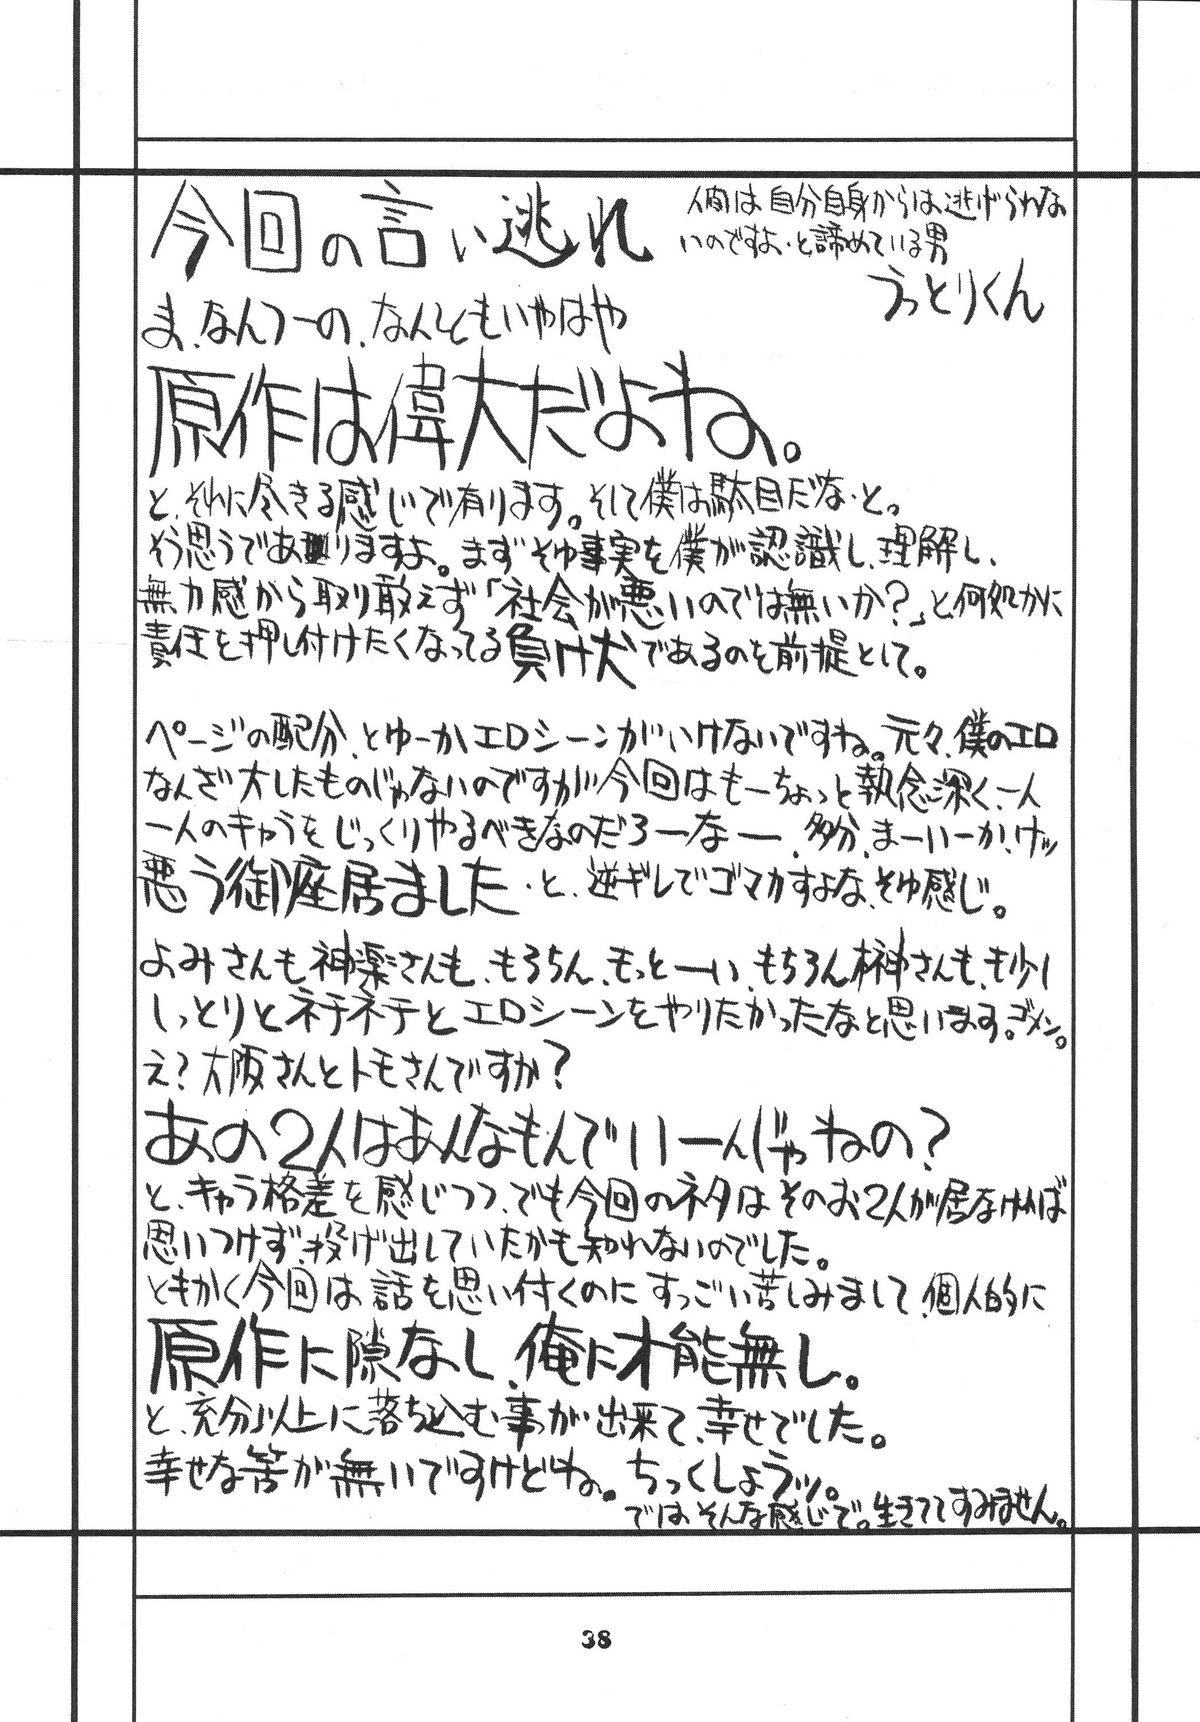 今回の言い逃れ
人間は自分自身からは逃げられな
いのですよ・と諦めている男
うっとりくん
ま、なんつーの、なんともいやはや
原作は偉大だよね。
と、それに尽きる感じで有ります。そして僕は駄目だな・と。
そう思うであ りますよ。まずそゆ事実を僕が認識し、理解し、
無力感から取り敢えず「社会が悪いのでは無いか?」と何処かに
責任を押し付けたくなってる負け犬であるのを前提として。
ページの配分、とゆーかエロシーンがいけないですね。元々、僕のエロ
なんざ大したものじゃないのですが今回はもーちょっと執念深く、一人
一人のキャラをじっくりやるべきなのだろーなー、多分、まーいーか、けッ
悪う御座居ました・と、逆ギレでゴマカすよな、そゆ感じ。
よみさんも神楽さんも、もろちん、もっとーい、もちろん榊さんも、も少し
しっとりとネチネチとエロシーンをやりたかったなと思います。ゴメン。
え?大阪さんとトモさんですか?
あの2人はあんなもんでいーんじゃねの?
と、キャラ格差を感じつつ、でも今回のネタはそのお2人が居なければ
思いつけず投げ出していたかも知れないのでした。
ともかく今回は話を思い付くのにすっごい苦しみまして、個人的に
原作に隙なし、俺に才能無し。
と、充分以上に落ち込む事が出来て、幸せでした。
幸せな筈が無いですけどね。ちっくしょうッ。
では、そんな感じで。生きててすみません。
38